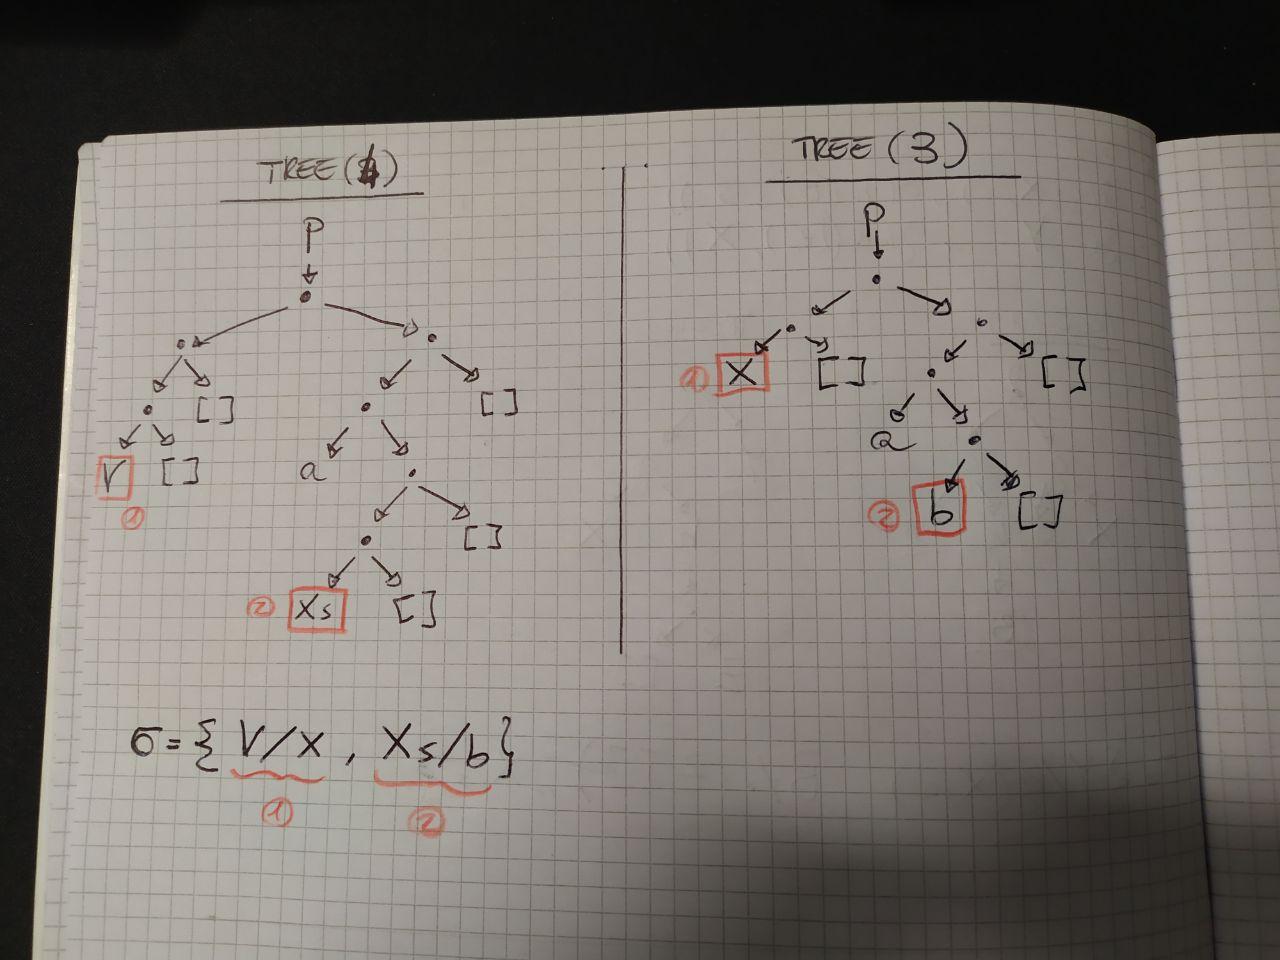 TREE (4)
P
[ ]
[ ]
V
[ ]
a
①
[ ]
② Xs
[ ]
TREE (3)
P
① X
[ ]
[ ]
a
② b
[ ]
σ = { V/X , Xs/b }
①
②